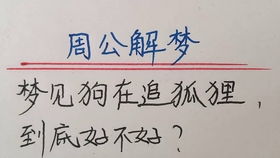 周公解梦
梦见狗在追狐狸，
到底好不好？